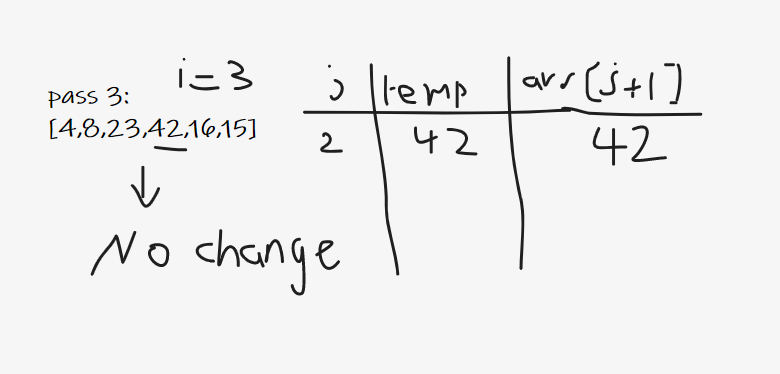 i=3
pass 3:
[4,8,23,42,16,15]
No change
j temp arr[j+1]
2 42 42